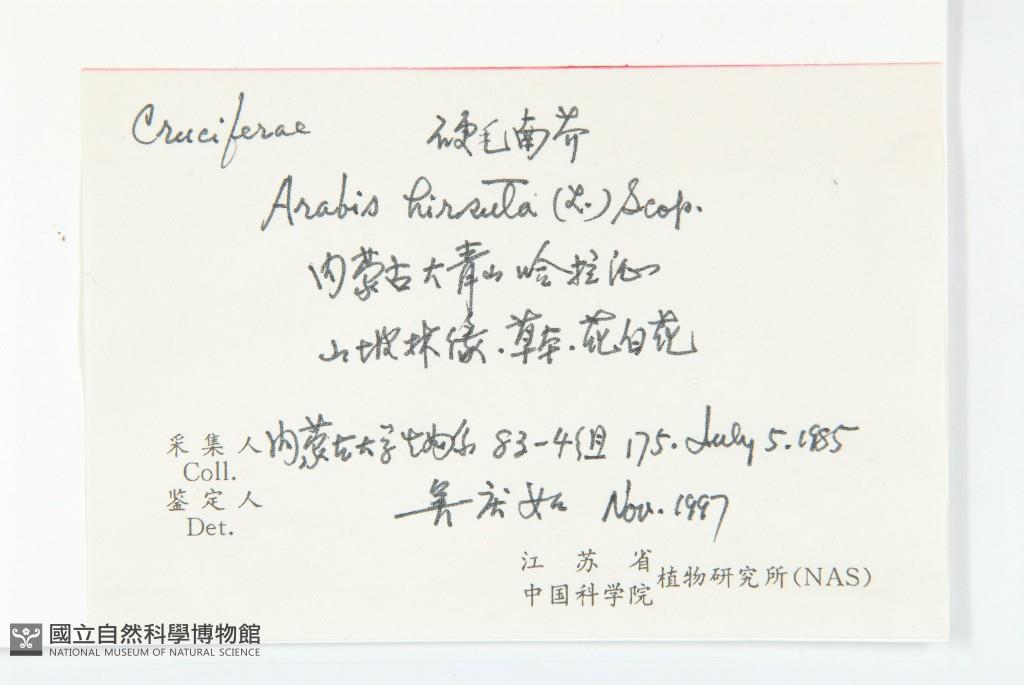 Cruciferae 硬毛南芥
Arabis hirsuta (L.) Scop.
内蒙古大青山哈拉沁
山坡林缘.草本.花白花
采集人 内蒙古大学生物系 83-4组 175. July 5. 1985
Coll.
鉴定人 庆如 Nov. 1997
Det.
江苏省
中国科学院 植物研究所(NAS)
國立自然科學博物館
NATIONAL MUSEUM OF NATURAL SCIENCE